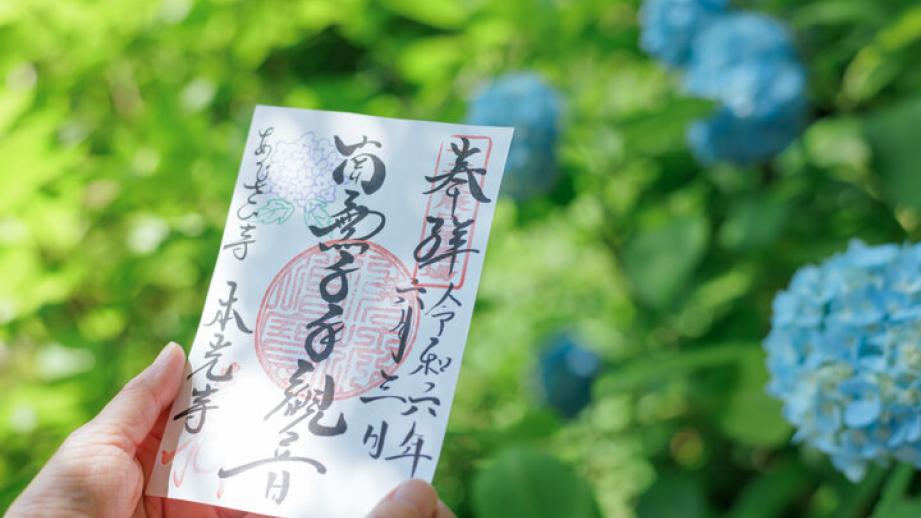 奉拝
令和六年
六月三日
南無千手観音
あじさい寺
本光寺